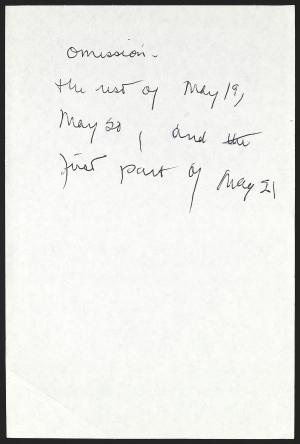 omission -
the rest of May 19,
May 20, and the
first part of May 21